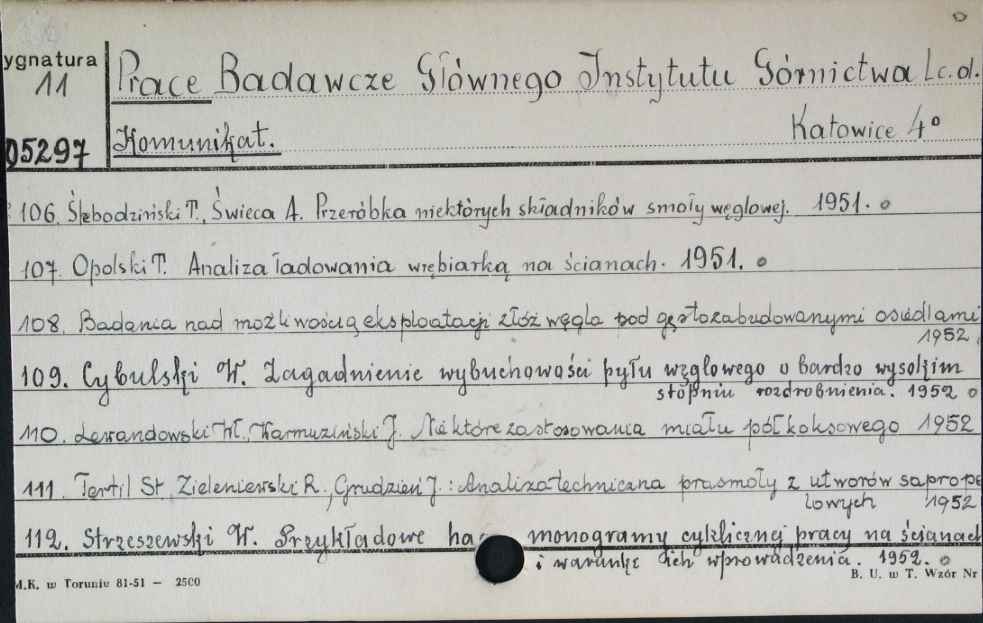 ygnatura
11
05297
Prace Badawcze Głównego Instytutu Górnictwa c.d.
Komunikat. Katowice 4°
106. Ślebodziński T., Święca A. Przeróbka niektórych składników smoły węglowej. 1951. o
107. Opolski T. Analiza ładowania wrębiarką na ścianach. 1951. o
108. Badania nad możliwością eksploatacji złóż węgla pod gęstozabudowanymi osiedlami
1952
109. Cybulski W. Zagadnienie wybuchowości pyłu węglowego o bardzo wysokim
stopniu rozdrobnienia. 1952 o
110. Lewandowski W., Karmuziński J. Niektóre zastosowania miału półkoksowego 1952
111. Tertil St, Zieleniewski R., Grudzień J.: Analiza techniczna prasmoły z utworów saprope
lowych 1952
112. Strzeszewski W. Przykładowe ha monogramy cyklicznej pracy na ścianach
i warunki ich wprowadzenia. 1952. o
M.K. w Toruniu 81-51 — 2500
B. U. w T. Wzór Nr